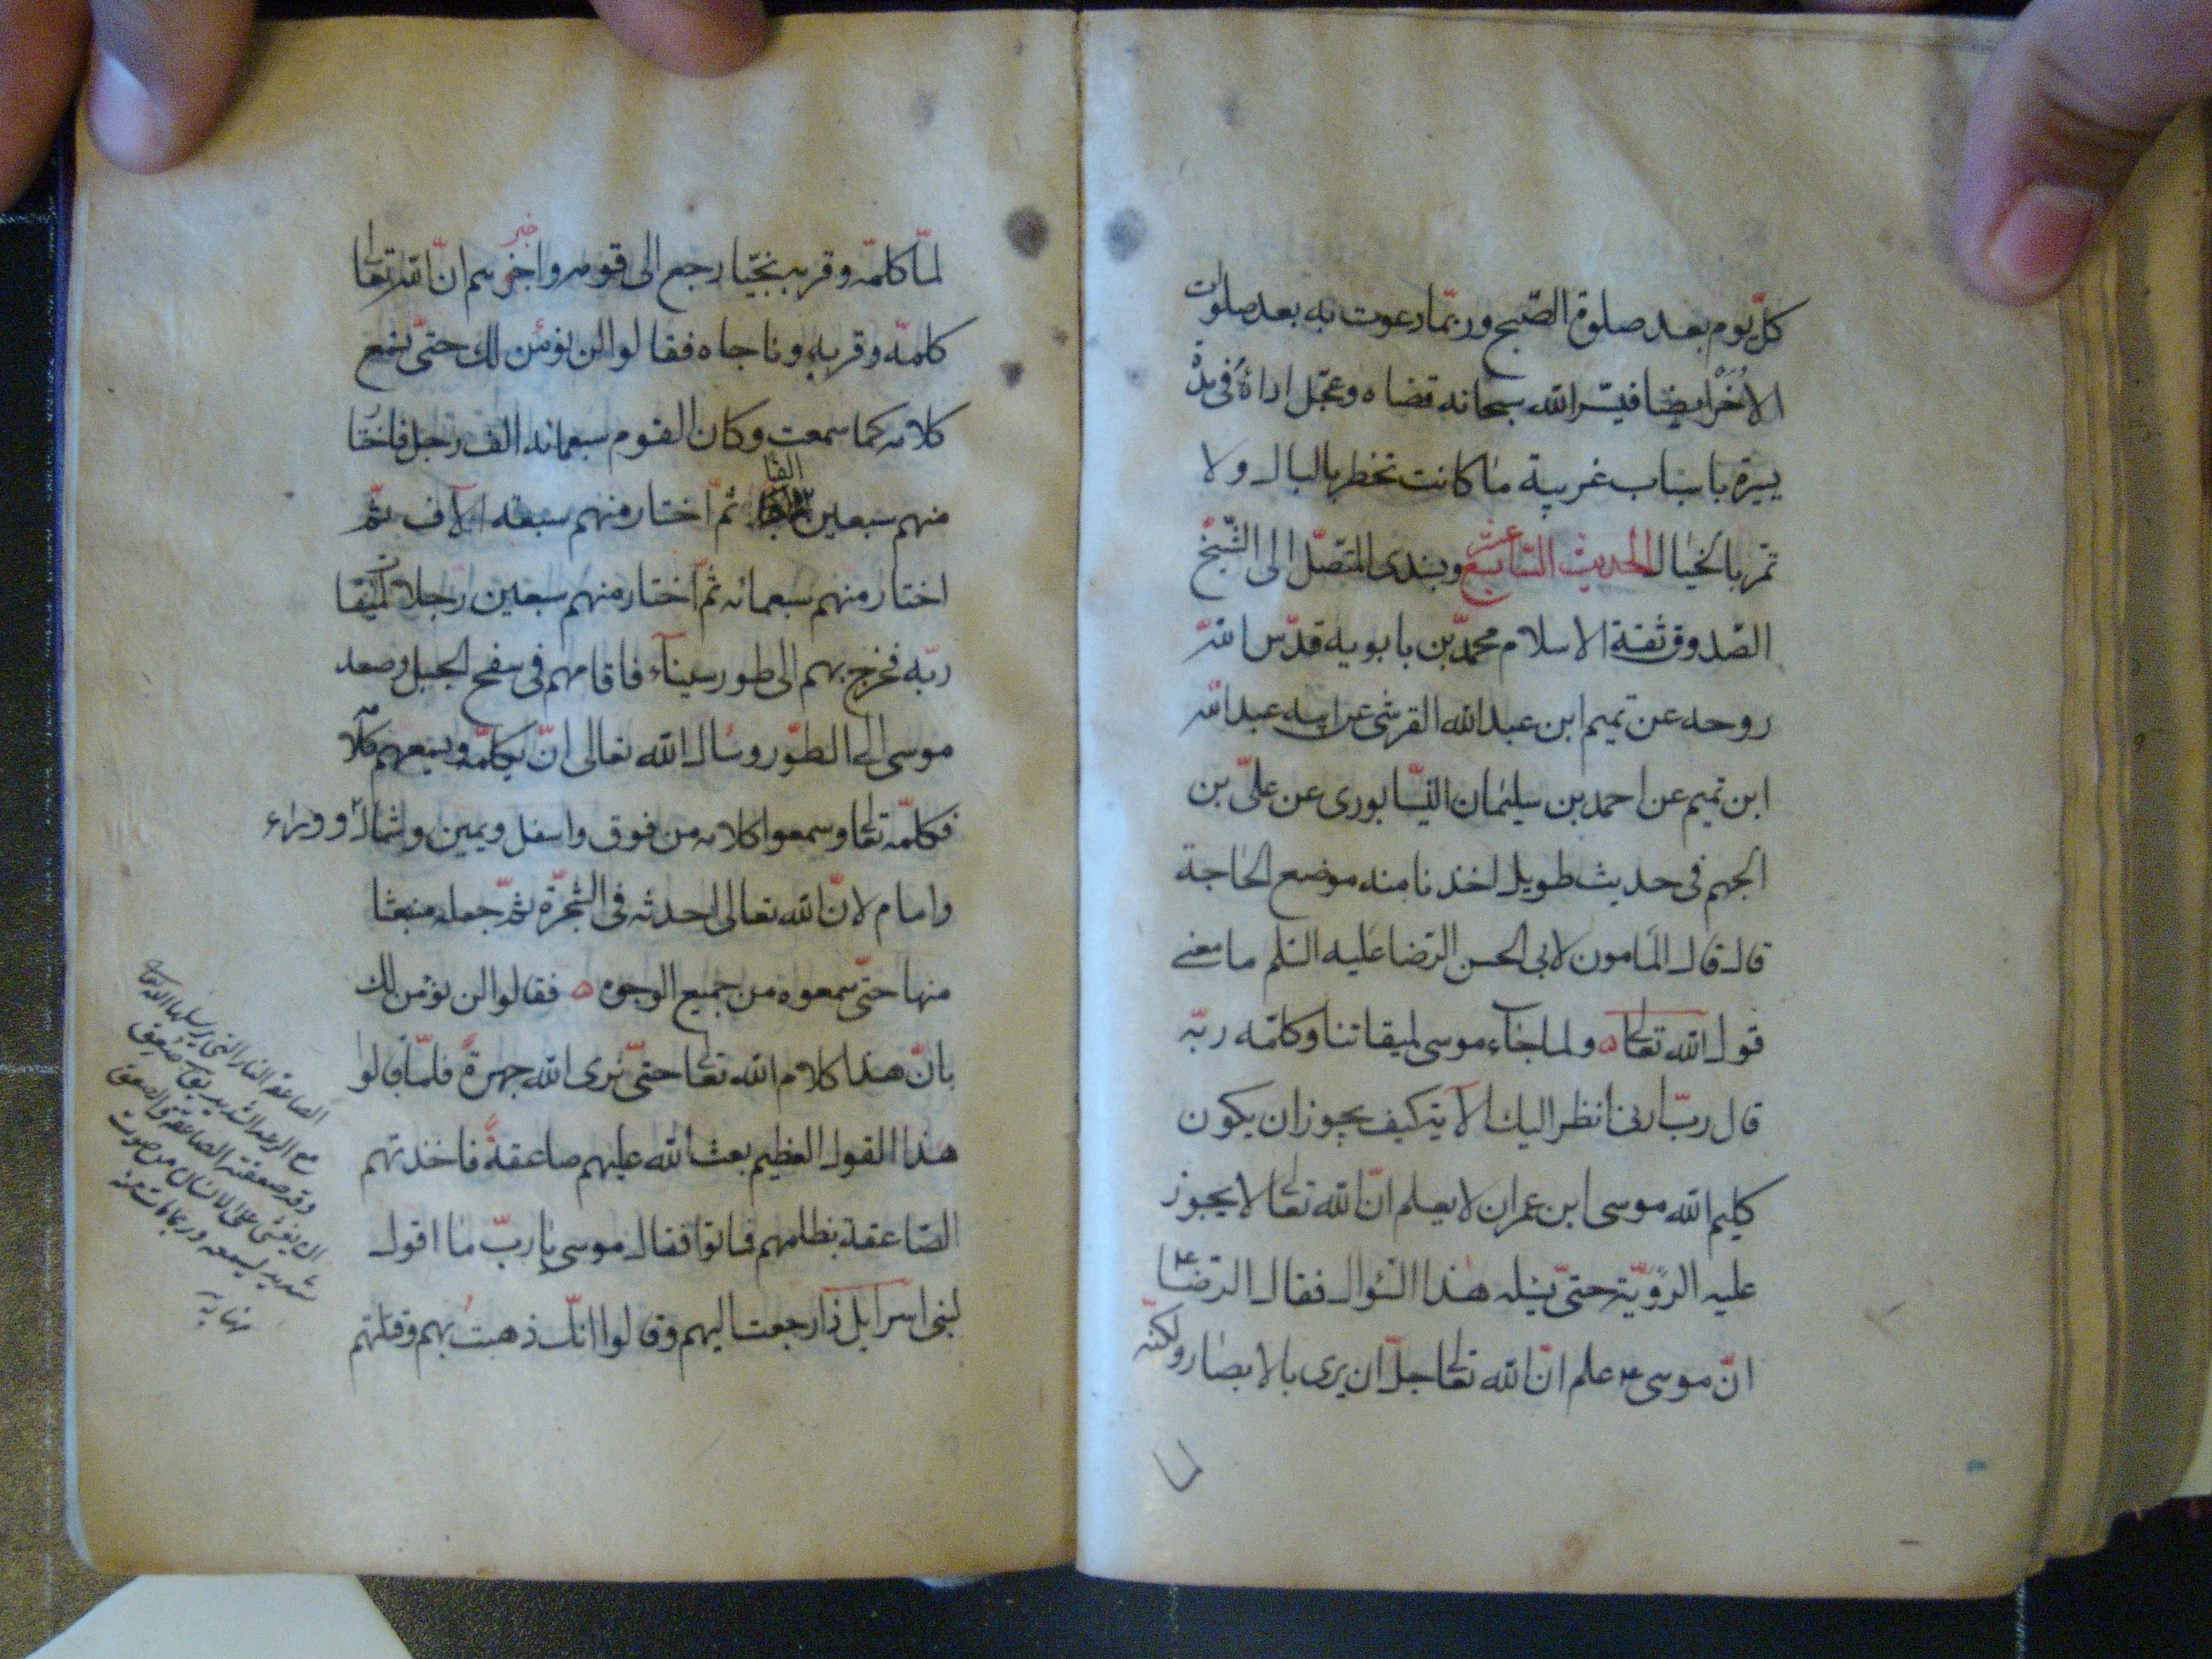 كلّ يوم بعد صلوة الصّبح وربّما دعوت به بعد صلوات
الاُخَر ايضا فيسّر الله سبحانه قضاه وعجّل اداءُ في مدّة
يسيرة باسباب غريبة ما كانت تخطر بالبال ولا
تمّر بالخيال الحديث السّابع عشر وبسندى المتّصل الى الشّيخ
الصّدوق ثقة الاسلام محمّد بن بابويه قدّس الله
روحه عن تميم ابن عبد الله القرشى عن ابيه عبد الله
ابن تميم عن احمد بن سليمان النيسابورى عن علىّ بن
الجهم فى حديث طويل اخذنا منه موضع الحاجة
قال قال المامون لابى الحسن الرّضا عليه السّلم ما معنى
قول الله تعالى ه ولما جاء موسى لميقاتنا وكلّمه ربّه
قال ربّ ارنى انظر اليك الآية كيف يجوز ان يكون
كليم الله موسى ابن عمران لا يعلم انّ الله تعالى لا يجوز
عليه الرّؤيّة حتىّ يسئله هذا السّؤال فقال الرّضا ع
انّ موسى ع علم انّ الله تعالى جلّ ان يرى بالابصار ولكنّه
لما
لمّا كلّمه وقربه نجيّا رجع الى قومه واخبرهم انّ الله تعالى
خبر
كلمّه وقربه وناجاه فقالوا لن نؤمن لك حتىّ نسمع
كلامه كما سمعت وكان القوم سبعمائه الف رجل فاختا
الفًا
منهم سبعين ثمّ اختار منهم سبعه الآف ثمّ
اختار منهم سبعمائه ثمّ اختار منهم سبعين رّجلا لميقات
ربّه فخرج بهم الى طور سيناء فاقامهم فى سفح الجبل وصعد
موسى الى الطوّر وسال الله تعالى انّ يكلمّه ويسمعهم كلامه
فكلمّه تعالى وسمعوا كلامه من فوق واسفل ويمين وشمال ووراء
وامام لانّ الله تعالى احدثه فى الشّجرّة ثمّ جعله منبعثا
منها حتّى سمعوه من جميع الوجوه ه فقالوا لن نؤمن لك
بانّ هذا كلام الله تعالى حتىّ نرى الله جهرةً فلمّا قالوا
هذا القول العظيم بعث الله عليهم صاعقةً فاخذتهم
الصّاعقة بظلمهم فماتوا فقال موسى يا ربّ ما اقول
لبنى اسرايل اذا رجعت اليهم وقالوا انك ذهبت بهم وقتلتهم
الصاعقة النار التى يرسلها الله تعالى
مع الرعد الشديد يق صعق
وقد صعقته الصاعقة والصعق
ان يغشى على الانسان من صوت
شديد يسمعه وربما مات منه
نهايه